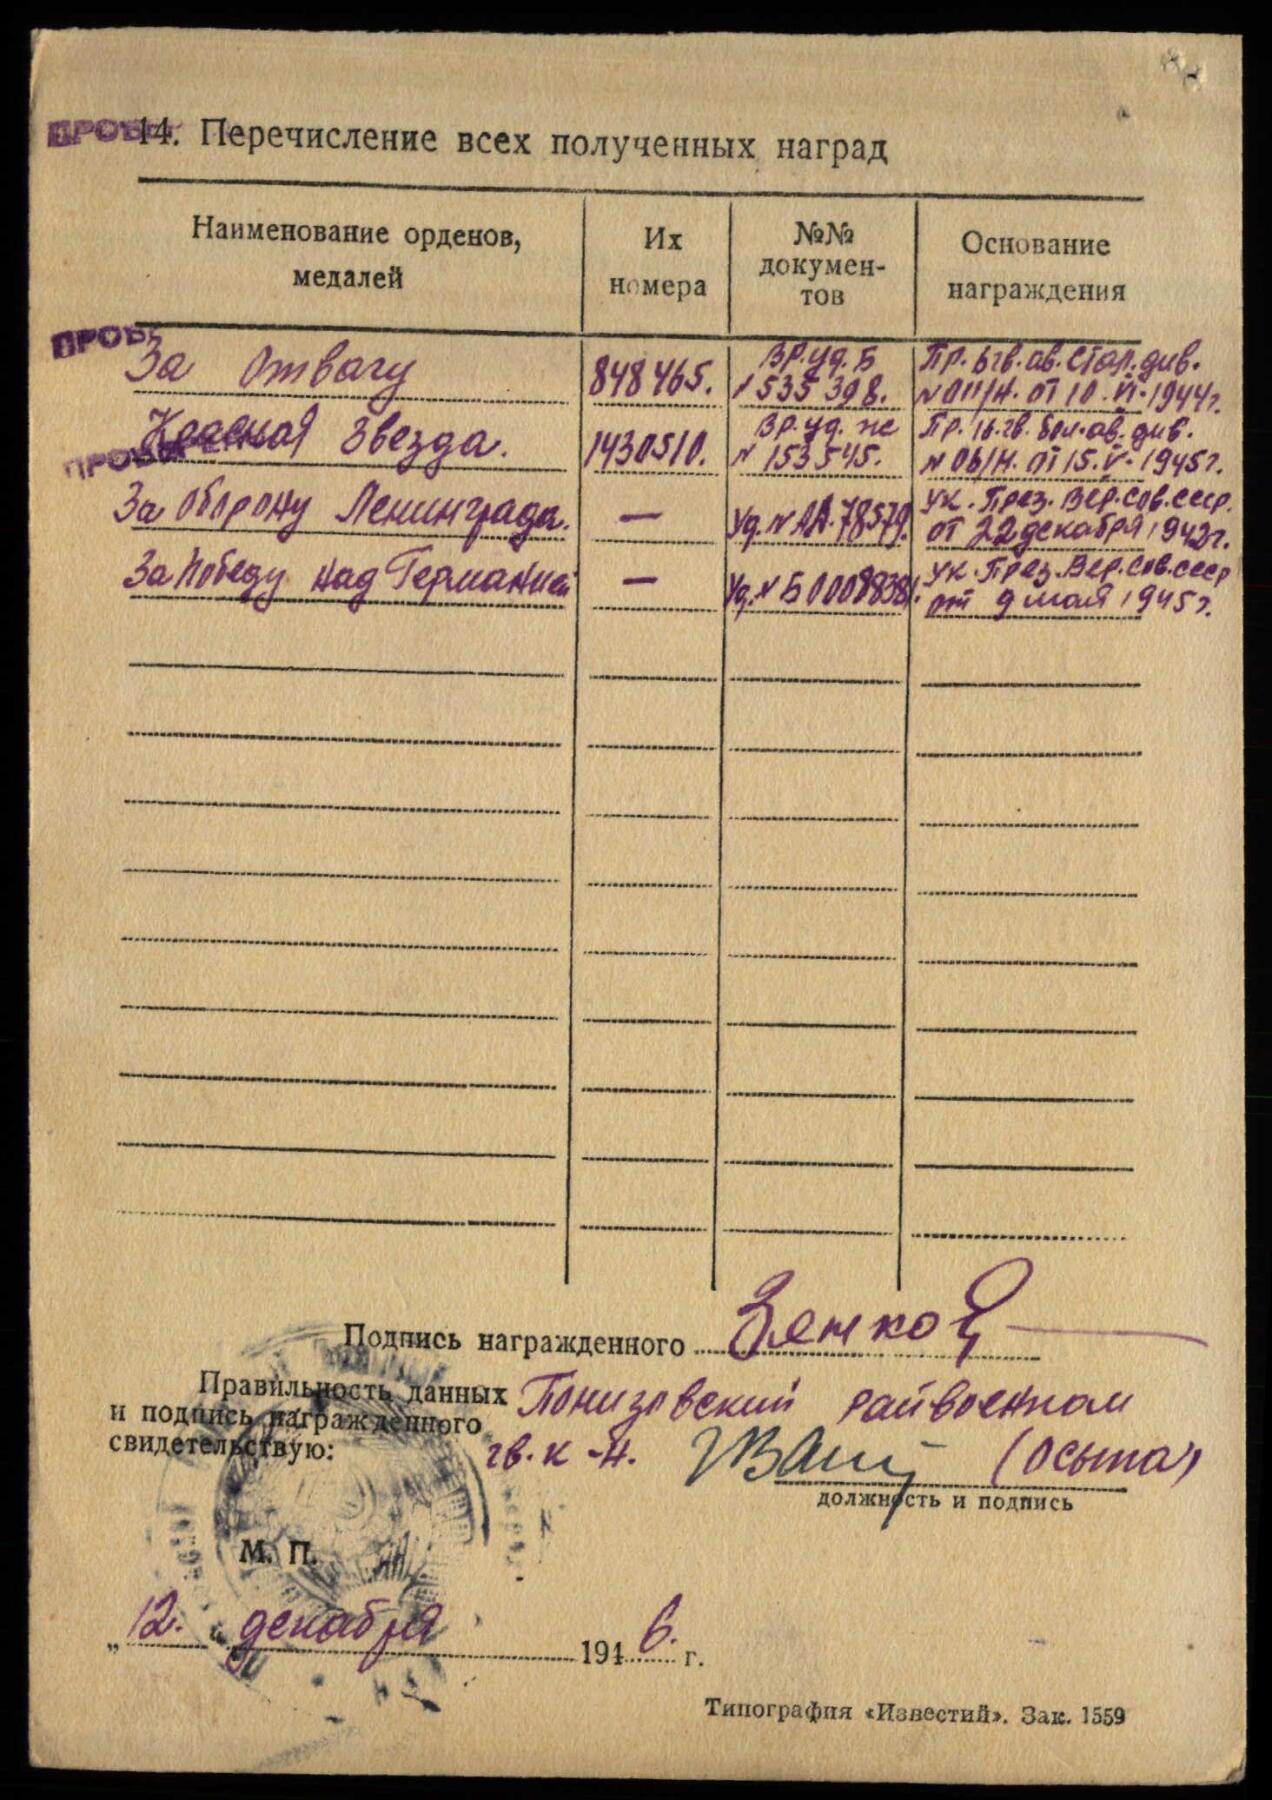 14. Перечисление всех полученных наград
Наименование орденов,
медалей
Их
номера
№№
докумен-
тов
Основание
награждения
За Отвагу
848465.
Вр. уд. Б
N 535398.
Пр. 6 гв. ав. Стал. див.
N 011/Н. от 10. VI. 1944 г.
Красная Звезда.
1430510.
Вр. уд. ж
N 153545.
Пр. 16. гв. бом. ав. див.
N 06/Н. от 15. V. 1945 г.
За Оборону Ленинграда.
—
Уд. N АА. 78579.
Ук. През. Вер. Сов. ссср.
от 22 декабря 1942 г.
За Победу над Германией
—
Уд. N Б 0008838
Ук. През. Вер. Сов. ссср
от 9 мая 1945 г.
Подпись награжденного Зенков
Правильность данных
и подпись награжденного
свидетельствую:
Понизовский райвоенком
гв. к-н. (Осыпа)
должность и подпись
М. П.
„ 12. " декабря 1946. г.
Типография «Известий». Зак. 1559